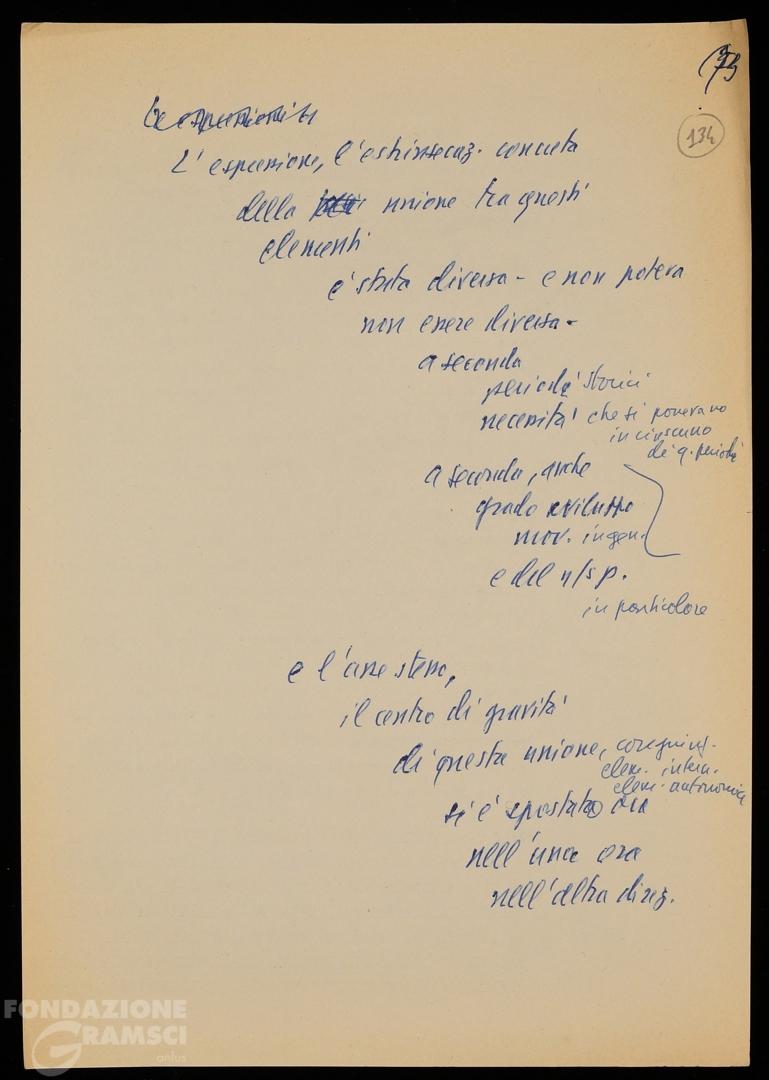 134
L'espressione, l'estrinsecaz. concreta
della unione tra questi
elementi
è stata diversa - e non poteva
non essere diversa -
a seconda
periodi storici
necessità che si ponevano
in ciascuno
di q. periodi
a seconda, anche
grado sviluppo
mov. in gen.
e del n/s p.
in particolare
e l'asse stesso,
il centro di gravità
di questa unione,
elem. intern.
elem. autonomia
si è spostato ora
nell'una ora
nell'altra direz.
FONDAZIONE
GRAMSCI
onlus